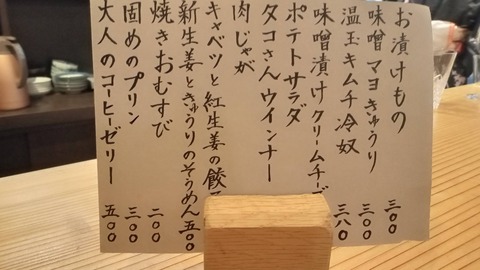 お漬けもの 三〇〇
味噌マヨきゅうり 三〇〇
温玉キムチ冷奴 三八〇
味噌漬けクリームチーズ
ポテトサラダ
タコさんウインナー
肉じゃが
キャベツと紅生姜の餃
新生姜ときゅうりのそうめん 五〇〇
焼きおむすび 二〇〇
固めのプリン 三〇〇
大人のコーヒーゼリー 五〇〇